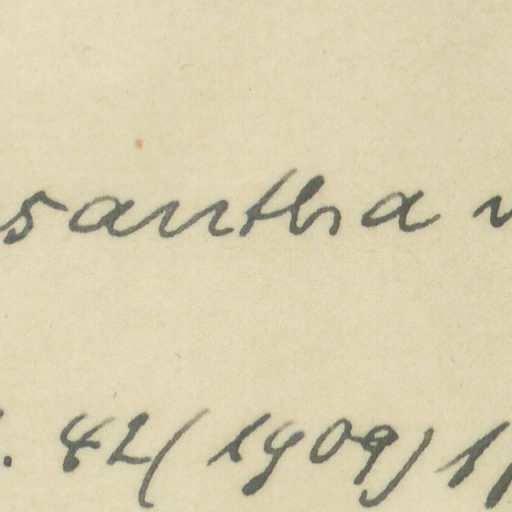 santha
. 42 (1909) 1